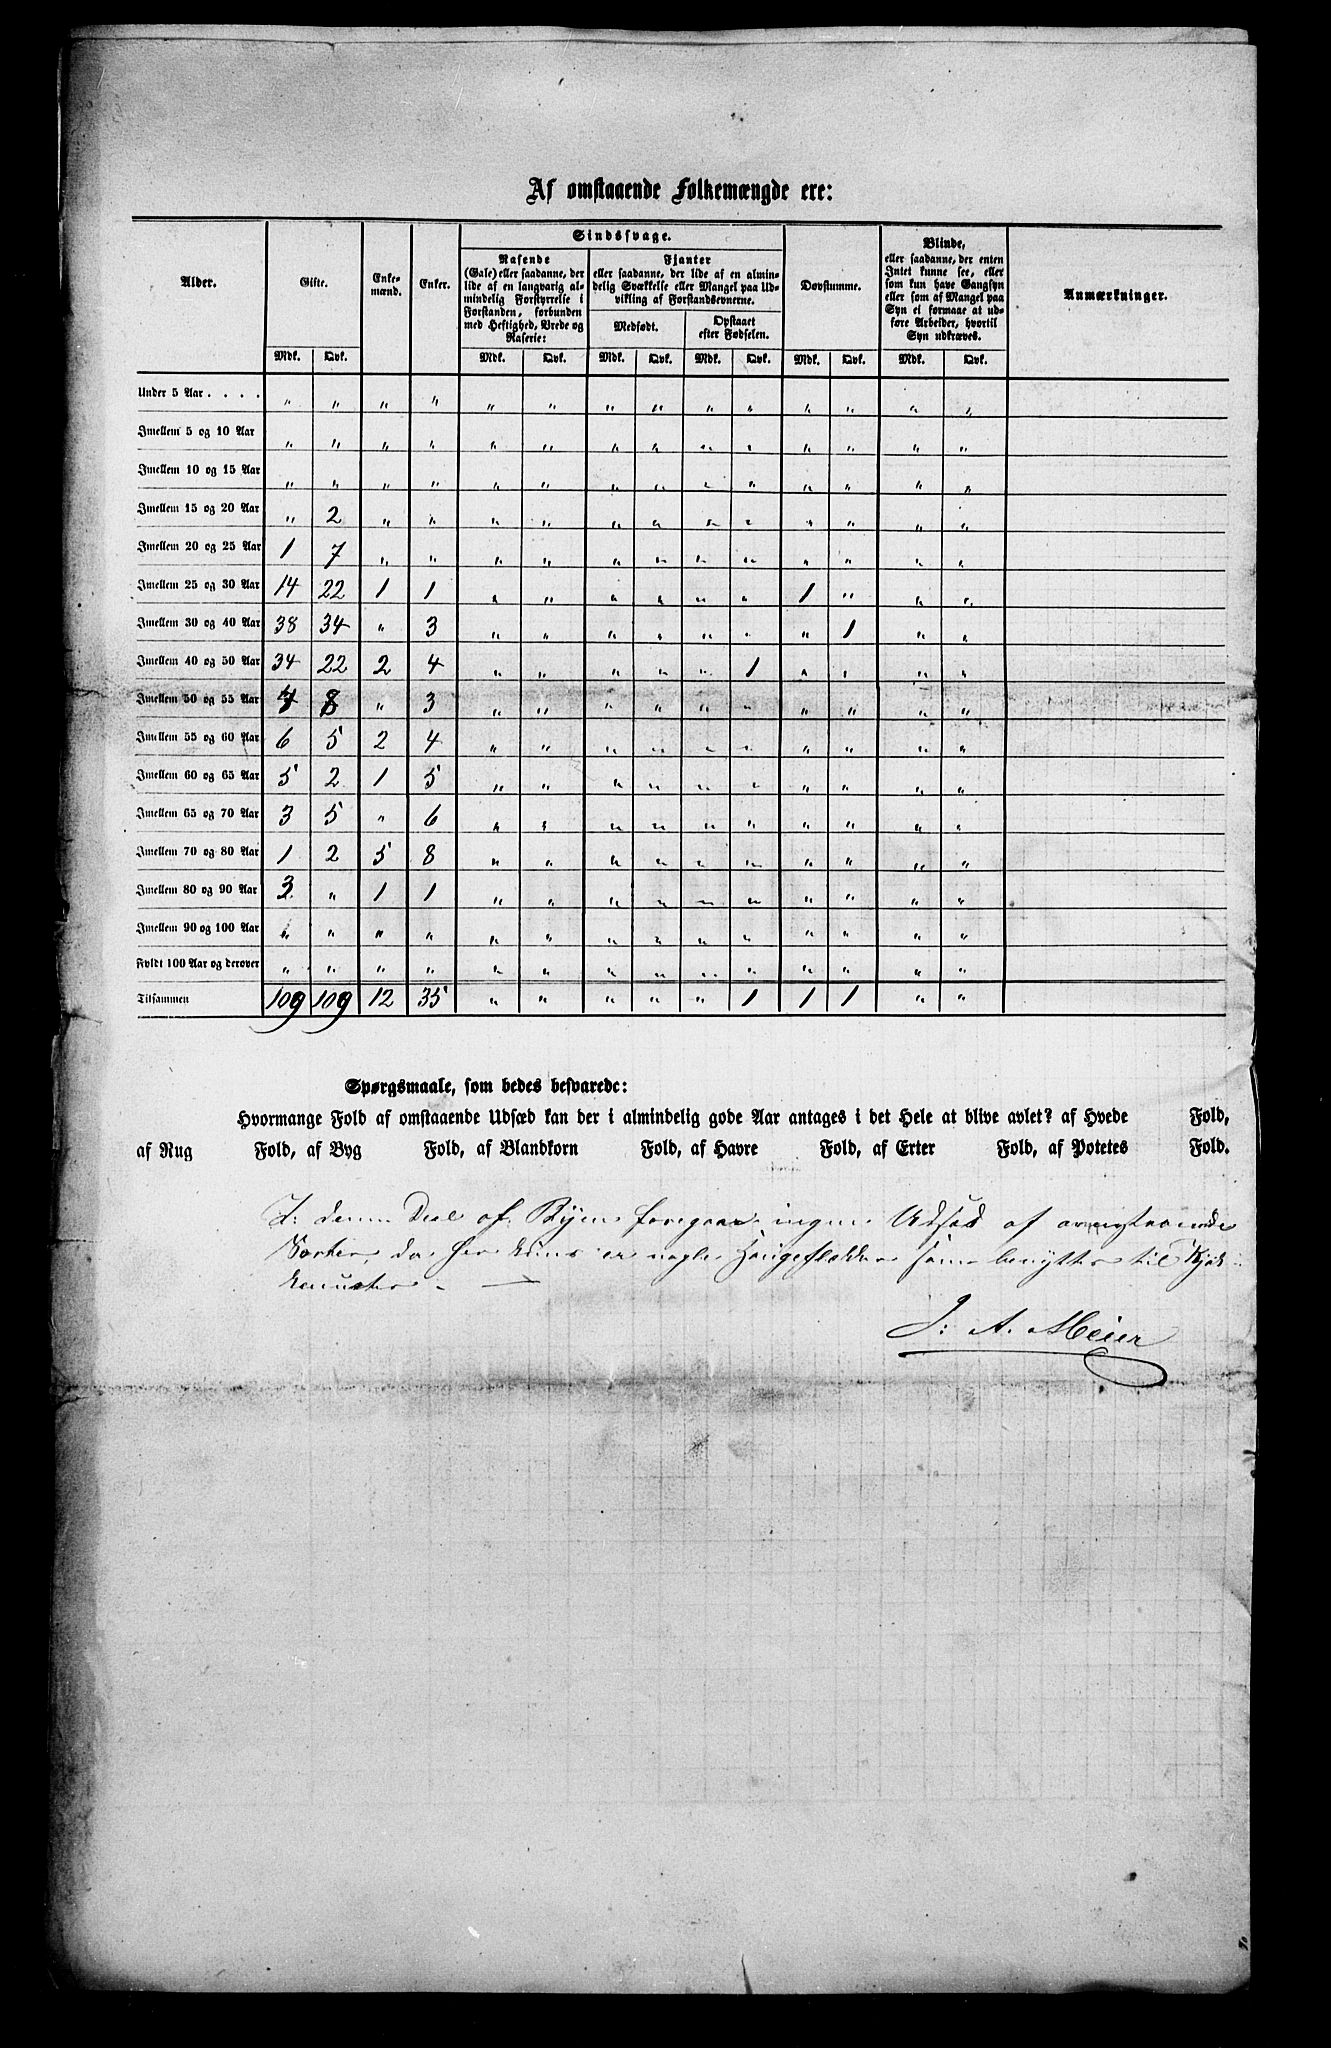 Af omstaaende Folkemængde ere:
Alder. Gifte. Enke-mænd. Enker. Sindssvage. Døvstumme. Blinde, Anmærkninger.
Rasende
(Gale) eller saadanne, der
lide af en langvarig al-
mindelig Forstyrrelse i
Forstanden, forbunden
med Heftighed, Vrede og
Raserie:
Fjanter
eller saadanne, der lide af en almin-
delig Svækkelse eller Mangel paa Ud-
vikling af Forstandsevnerne.
Medfødt. Opstaaet
efter Fødselen.
eller saadanne, der enten
Intet kunne see, eller
som kun have Gangsyn
eller som af Mangel paa
Syn ei formaae at ud-
føre Arbeider, hvortil
Syn udkræves.
Mdk. Qvk. Mdk. Qvk. Mdk. Qvk. Mdk. Qvk. Mdk. Qvk. Mdk. Qvk.
Under 5 Aar . . . . " " " " " " " " " " " " " "
Imellem 5 og 10 Aar " " " " " " " " " " " " " "
Imellem 10 og 15 Aar " " " " " " " " " " " " " "
Imellem 15 og 20 Aar " 2 " " " " " " " " " " " "
Imellem 20 og 25 Aar 1 7 " " " " " " " " " " " "
Imellem 25 og 30 Aar 14 22 1 1 " " " " " " 1 " " "
Imellem 30 og 40 Aar 38 34 " 3 " " " " " " " 1 " "
Imellem 40 og 50 Aar 34 22 2 4 " " " " " 1 " " " "
Imellem 50 og 55 Aar 4 8 " 3 " " " " " " " " " "
Imellem 55 og 60 Aar 6 5 2 4 " " " " " " " " " "
Imellem 60 og 65 Aar 5 2 1 5 " " " " " " " " " "
Imellem 65 og 70 Aar 3 5 " 6 " " " " " " " " " "
Imellem 70 og 80 Aar 1 2 5 8 " " " " " " " " " "
Imellem 80 og 90 Aar 3 " 1 1 " " " " " " " " " "
Imellem 90 og 100 Aar " " " " " " " " " " " " " "
Fyldt 100 Aar og derover " " " " " " " " " " " " " "
Tilsammen 109 109 12 35 " " " " " 1 1 1 " "
Spørgsmaale, som bedes besvarede:
Hvormange Fold af omstaaende Udsæd kan der i almindelig gode Aar antages i det Hele at blive avlet? af Hvede Fold,
af Rug Fold, af Byg Fold, af Blandkorn Fold, af Havre Fold, af Erter Fold, af Potetes Fold.
I denne Deel af Byen foregaar ingen Udsæd af ovenstaaende
Sorter, da her kuns er nogle Haugeflekker som benyttes til Kjøk-
kenurter. —
J: A. Meier